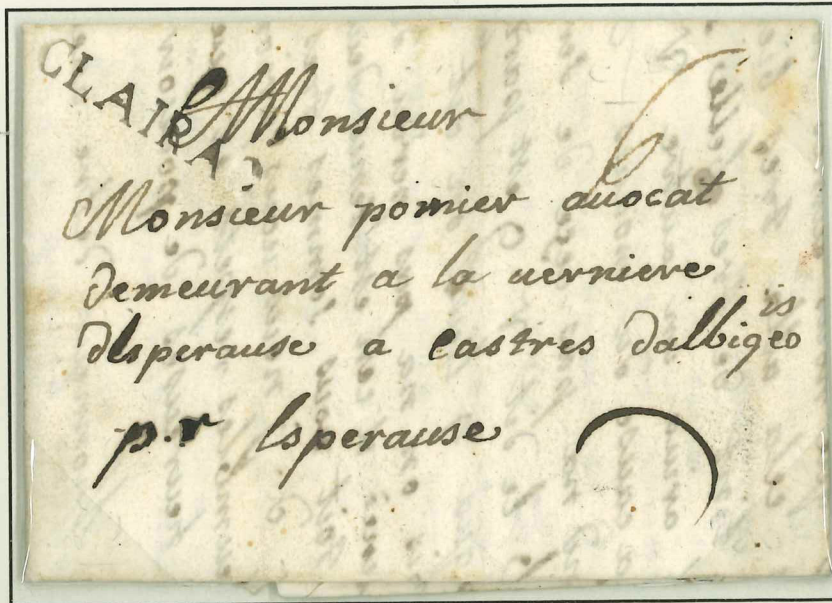 CLAIRAC
A Monsieur
6
Monsieur pomier auocat
demeurant a la uerniere
desperause a castres dalbigeois
p.r Esperause